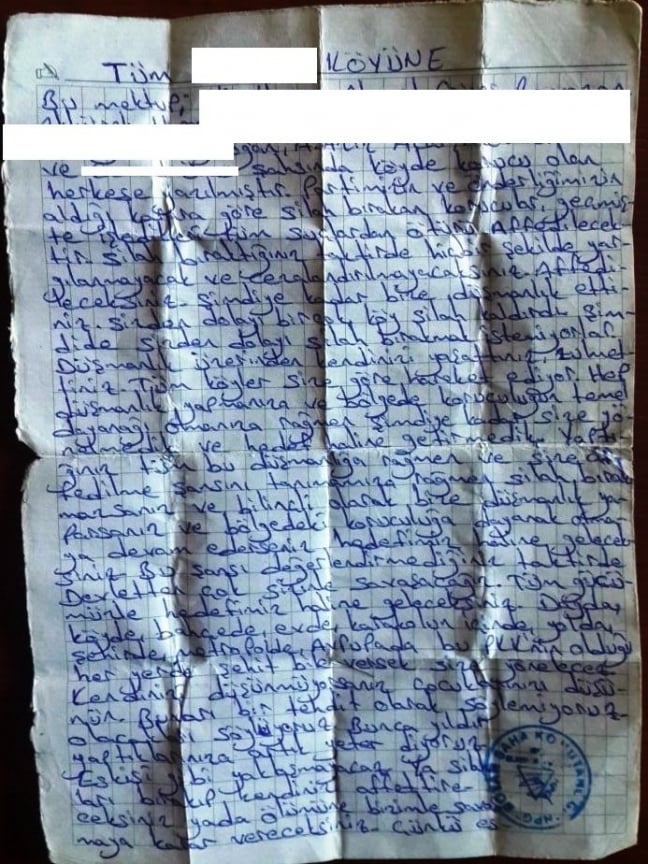 TÜM KÖYÜNE
Bu mektup,
ve şahsında köyde korucu olan
herkese yazılmıştır. Partimizin ve önderliğimizin
aldığı karara göre silah bırakan korucular geçmiş-
te işledikleri tüm suçlardan ötürü Affedilecek-
tir. Silah bıraktığınız taktirde hiçbir şekilde yar-
gılanmayacak ve cezalandırılmayacaksınız. Affedi-
leceksiniz. Şimdiye kadar bize düşmanlık etti-
niz. Sizden dolayı birçok köy silah kaldırdı. Şim-
dide sizden dolayı silah bırakmak istemiyorlar
Düşmanlık üzerinden kendinizi yaşattınız. zulmet-
tiniz. Tüm köyler size göre hareket ediyor. Hep
düşmanlık yapmanıza ve bölgede koruculuğun temel
dayanağı olmanıza rağmen şimdiye kadar size yö-
nelmedik ve hedef haline getirmedik. Yaptı-
ğınız tüm bu düşmanlığa rağmen ve size af-
fedilme şansını tanımamıza rağmen silah bırak-
mazsanız ve bilinçli olarak bize düşmanlık ya-
parsanız ve bölgedeki koruculuğa dayanak olma-
ya devam ederseniz hedefimiz haline gelecek-
siniz. Bu şansı değerlendirmediğiniz taktirde
Devletten çok sizinle savaşacağız. Tüm gücü-
müzle hedefimiz haline geleceksiniz. Dağda,
köyde, bahçede, evde, karakolun içinde, yolda,
şehirde, metropolde, Avrupada bu PKK'nin olduğu
her yerde şehit bile versek size yönelecez
Kendinizi düşünmüyorsanız çocuklarınızı düşü-
nün. Bunları bir tehdit olarak söylemiyoruz.
olacakları söylüyoruz. Bunca yıldır
yaptıklarınıza artık yeter diyoruz
Eskisi gibi yaklaşmayacaz. Ya silah-
ları bırakıp kendinizi affettire-
ceksiniz yada ölümüne bizimle savaş-
maya karar vereceksiniz. Çünkü es
HPG ANA KOMUTANLIĞI